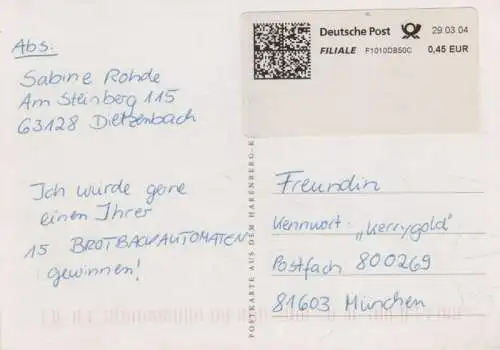 Abs:
Sabine Rohde
Am Steinberg 115
63128 Dietzenbach
Ich würde gerne
einen Ihrer
15 BROTBACKAUTOMATEN
gewinnen!
POSTKARTE AUS DEM HARENBERG-K
Deutsche Post 29.03.04
FILIALE F1010DB50C 0,45 EUR
Freundin
Kennwort „Kerrygold"
Postfach 800269
81603 München